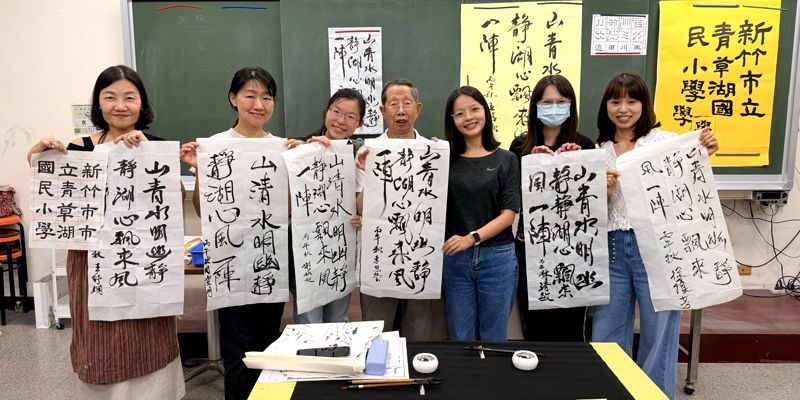 山青水明幽
靜湖心飄來
一陣
山青水明幽
靜湖心飄來
一陣
新竹市立
青草湖國
民小學
新竹市
立青草湖
國民小學
山青水明幽靜
靜湖心飄來風
山清水明幽靜
靜湖心風一陣
山青水明幽靜
靜湖心飄來風
一陣
山青水明幽靜
靜湖心飄來風
一陣
山青水明幽
靜靜湖心飄來
風一陣
山青水明幽靜
靜湖心飄來
風一陣